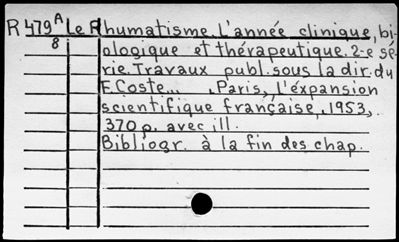 R 479 A Le Rhumatisme. L'année clinique, bi-
8 ologique et thérapeutique. 2-e sé-
rie. Travaux publ. sous la dir. du
F. Coste... . Paris, L'éxpansion
scientifique française, 1953,
370 p. avec ill.
Bibliogr. à la fin des chap.